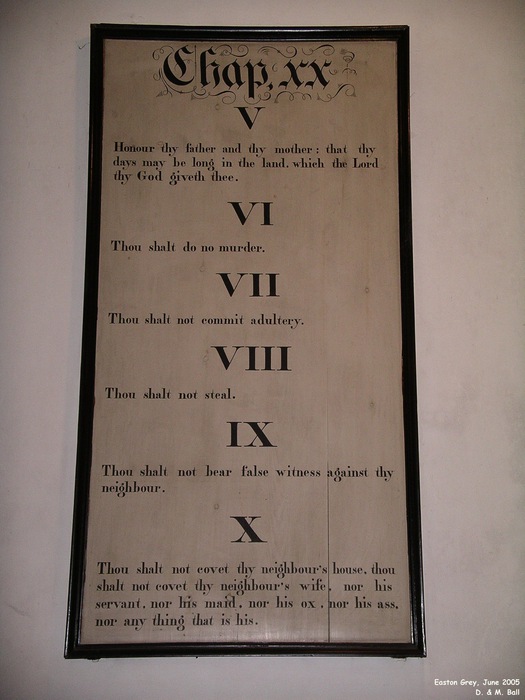 Chap, xx
V
Honour thy father and thy mother : that thy
days may be long in the land, which the Lord
thy God giveth thee.
VI
Thou shalt do no murder.
VII
Thou shalt not commit adultery.
VIII
Thou shalt not steal.
IX
Thou shalt not bear false witness against thy
neighbour.
X
Thou shalt not covet thy neighbour's house, thou
shalt not covet thy neighbour's wife, nor his
servant, nor his maid, nor his ox, nor his ass,
nor any thing that is his.
Easton Grey, June 2005
D. & M. Ball